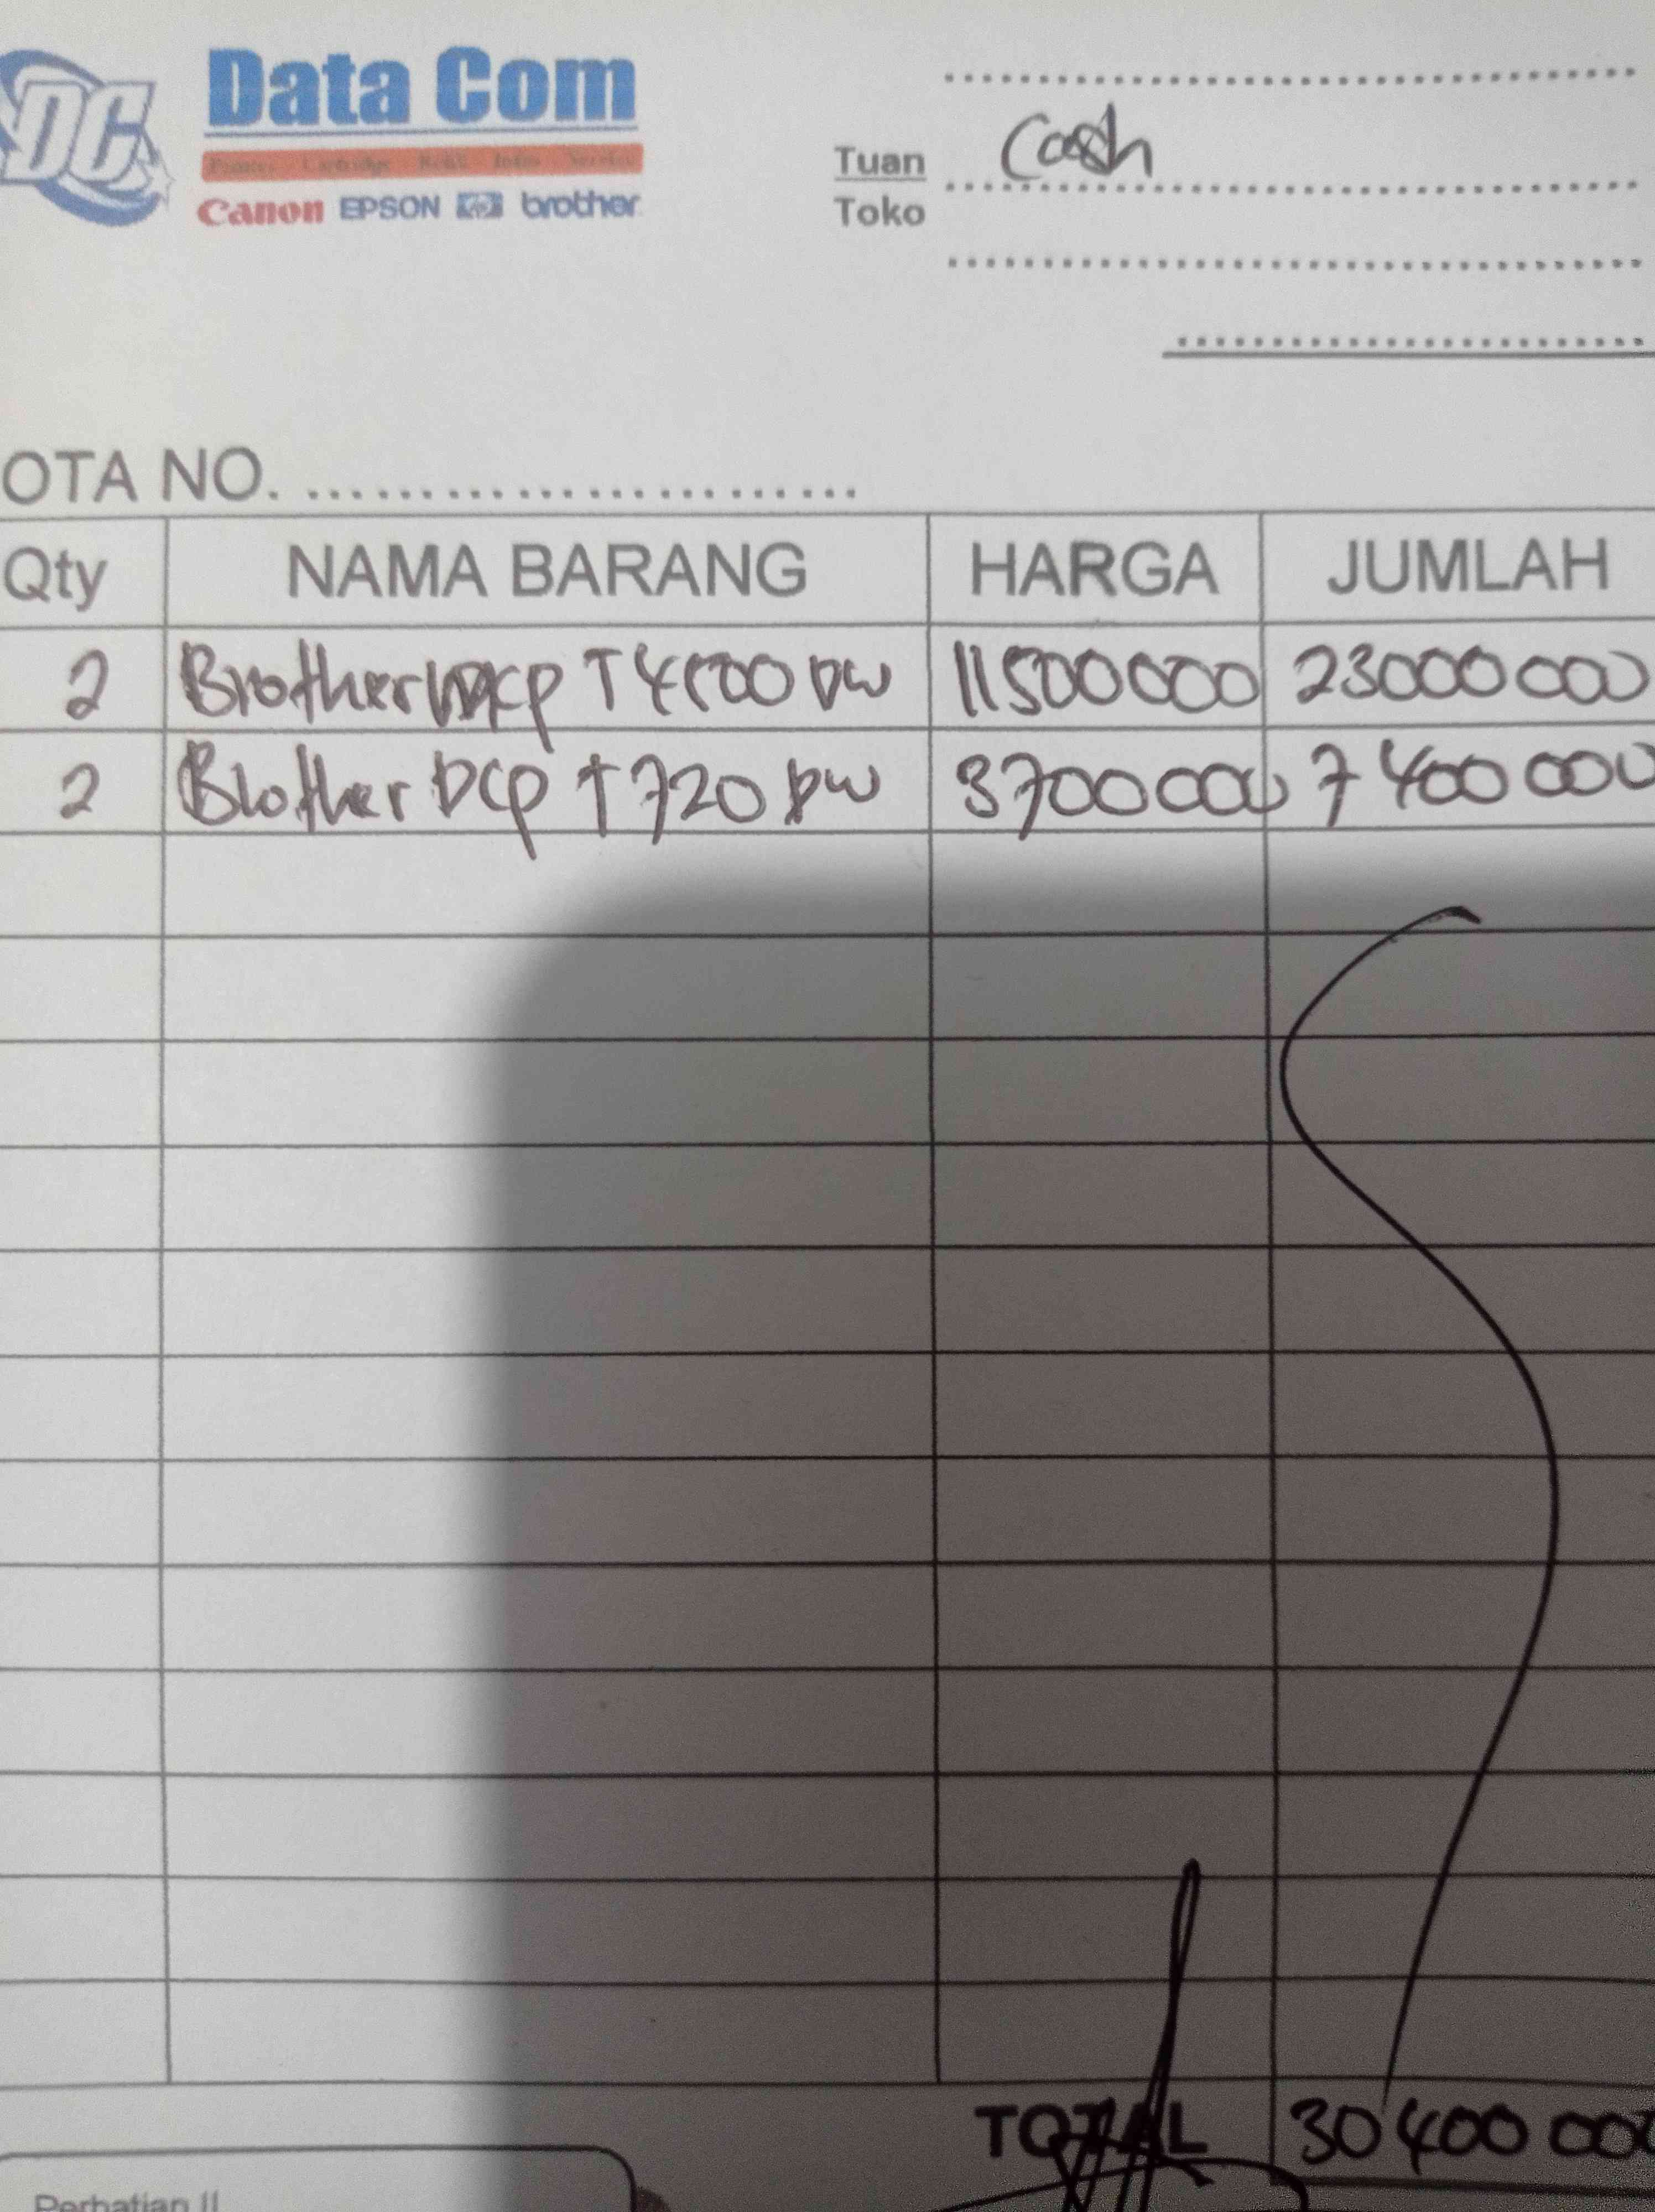 DC
Data Com
Printer - Cartridge - Refill - Infus - Service
Canon EPSON hp brother
Tuan Cash
Toko
OTA NO. ..............................
Qty NAMA BARANG HARGA JUMLAH
2 Brother DCP T4500 DW 11500000 23000 000
2 Blother DCP T720 DW 3700 000 7 400 000
TOTAL 30 400 000
Perhatian !!